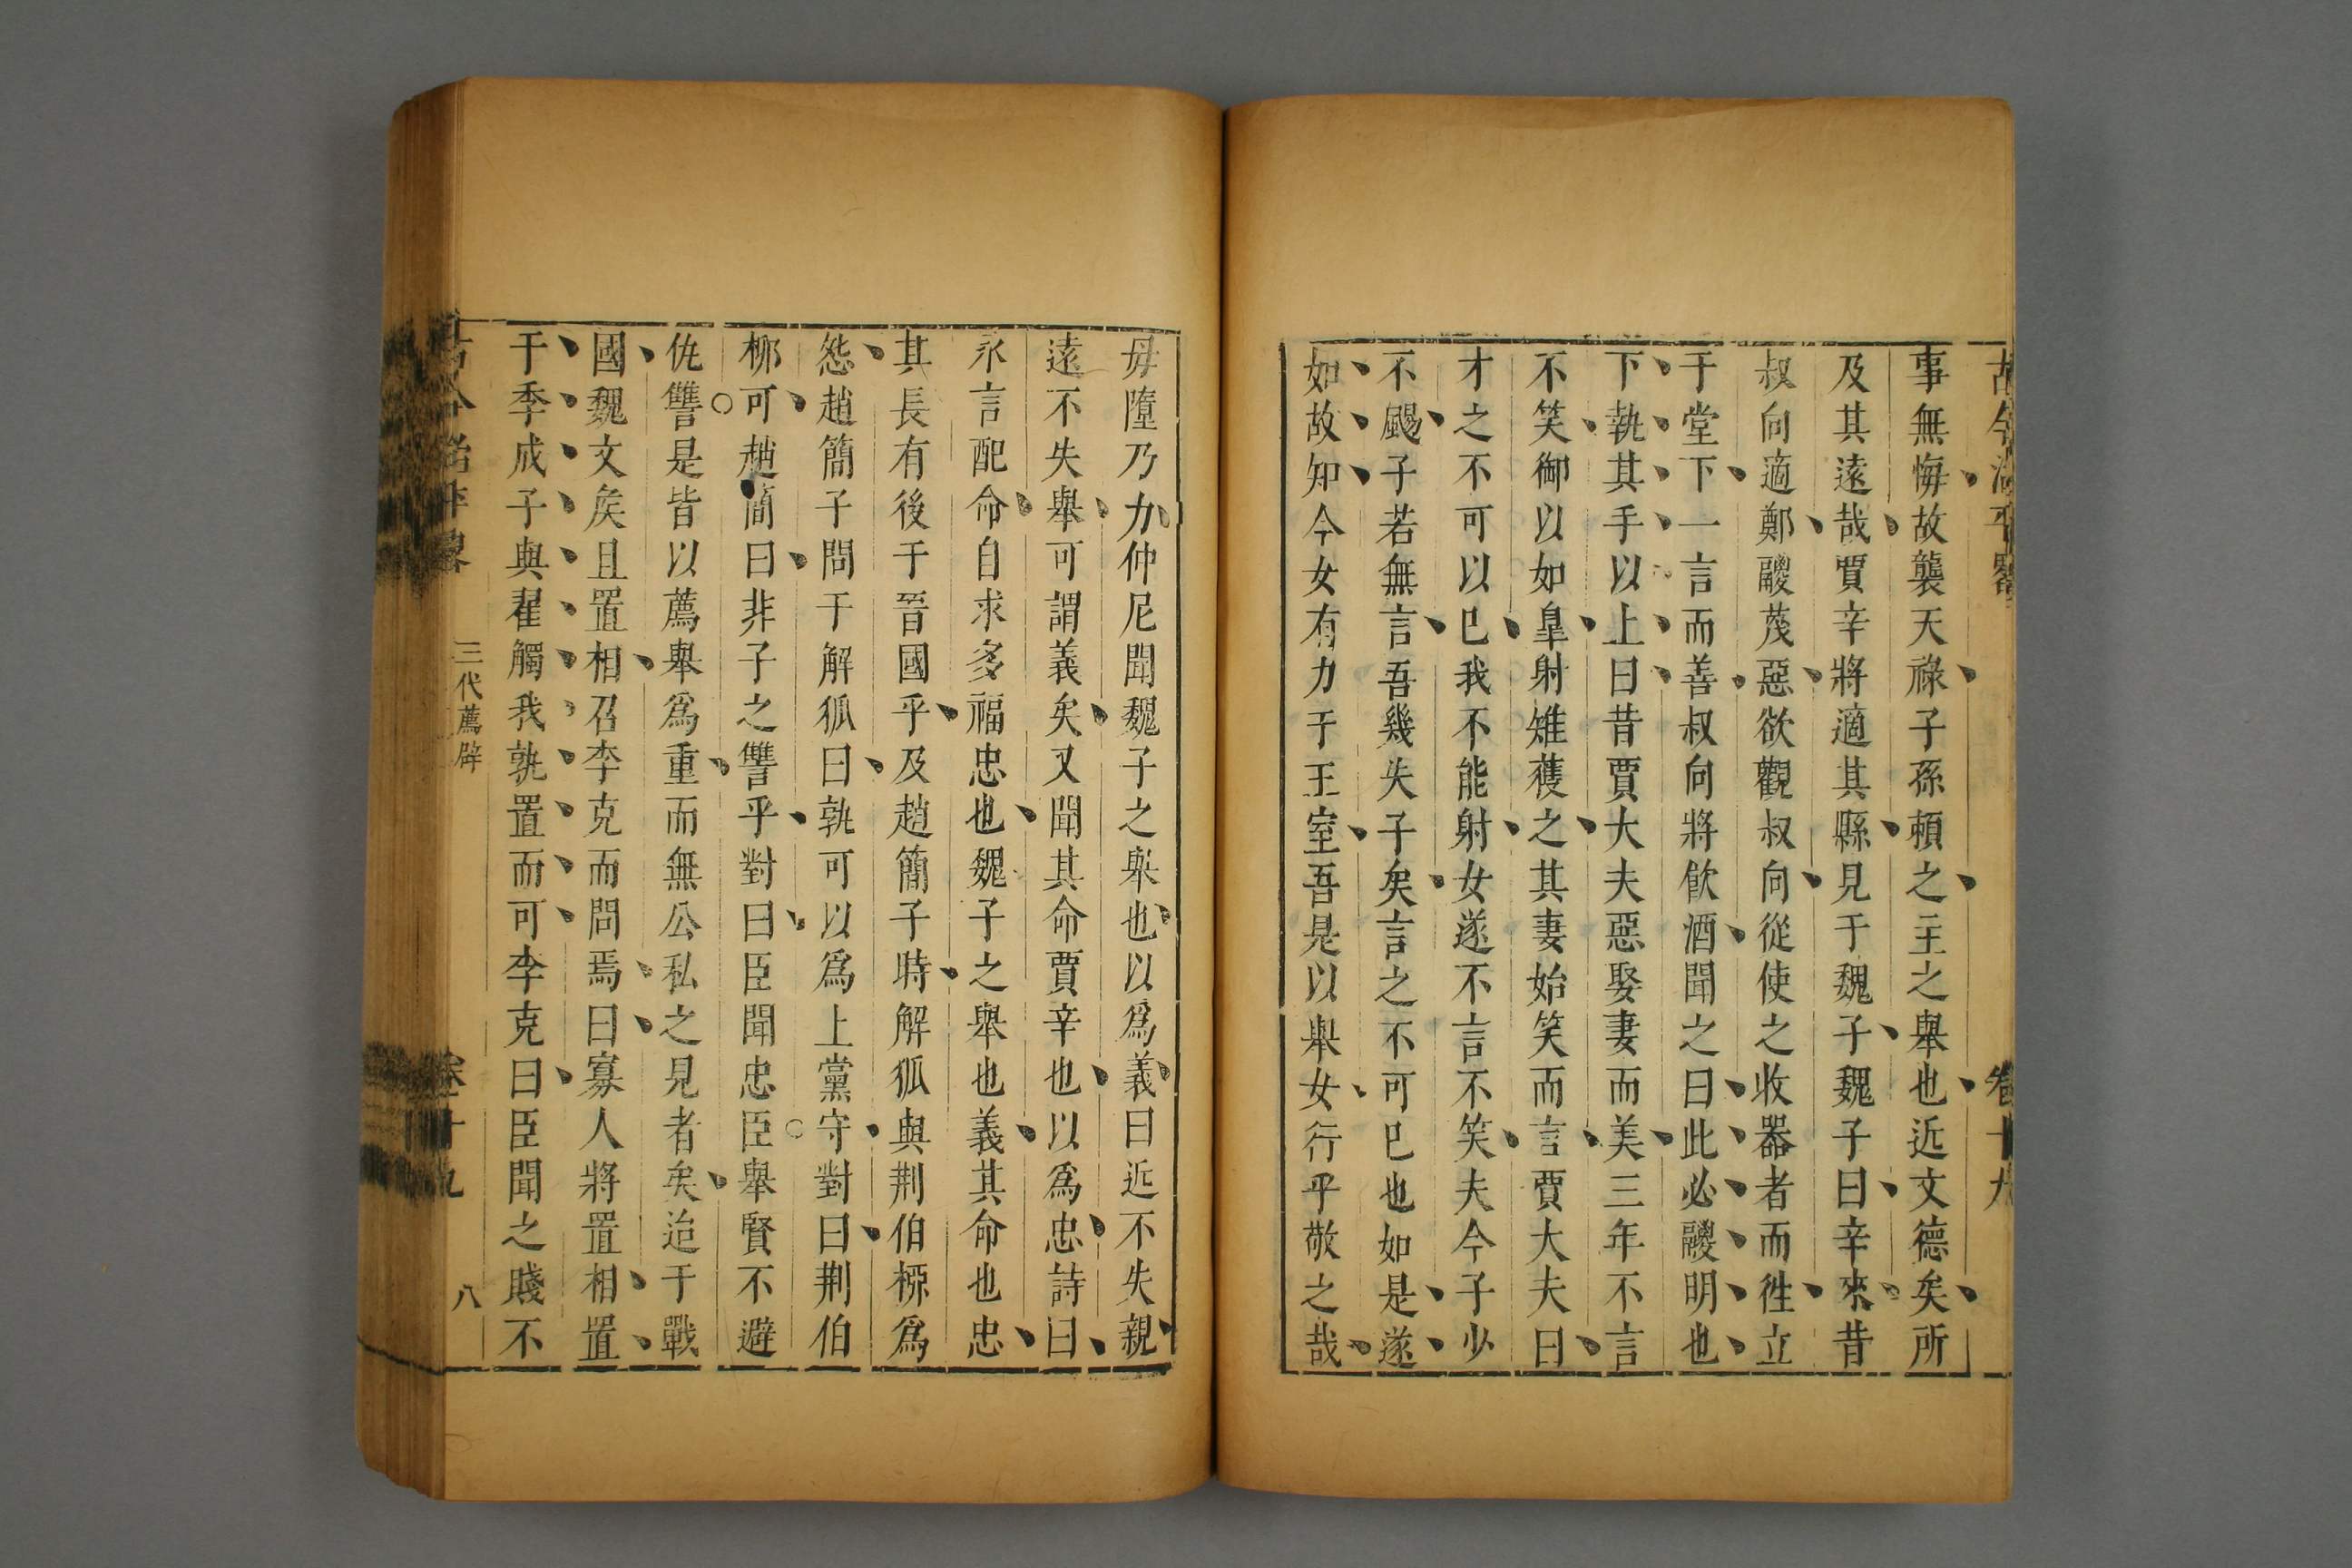 古今治平畧 卷十九
事無悔故襲天祿子孫頼之主之舉也近文德矣所
及其遠哉賈辛將適其縣見于魏子魏子曰辛來昔
叔向適鄭鬷蔑惡欲觀叔向從使之收器者而徃立
于堂下一言而善叔向將飲酒聞之曰此必鬷明也
下執其手以上曰昔賈大夫惡娶妻而美三年不言
不笑御以如臯射雉獲之其妻始笑而言賈大夫曰
才之不可以已我不能射女遂不言不笑夫今子少
不颺子若無言吾幾失子矣言之不可已也如是遂
如故知今女有力于王室吾是以舉女行乎敬之哉
毋墮乃力仲尼聞魏子之舉也以爲義曰近不失親
遠不失舉可謂義矣又聞其命賈辛也以爲忠詩曰
永言配命自求多福忠也魏子之舉也義其命也忠
其長有後于晉國乎及趙簡子時解狐與荆伯桺爲
怨趙簡子問于解狐曰孰可以爲上黨守對曰荆伯
桺可趙簡曰非子之讐乎對曰臣聞忠臣舉賢不避
仇讐是皆以薦舉爲重而無公私之見者矣迨于戰
國魏文矦且置相召李克而問焉曰寡人將置相置
于季成子與翟觸我孰置而可李克曰臣聞之賤不
古今治平畧 三代薦辟 卷十九 八